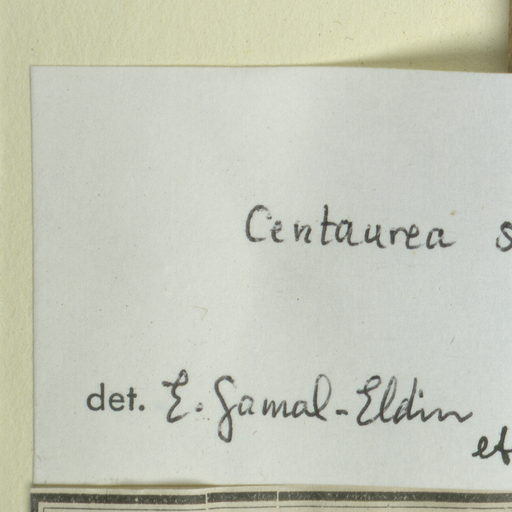 Centaurea s
det. E. Gamal-Eldin
et